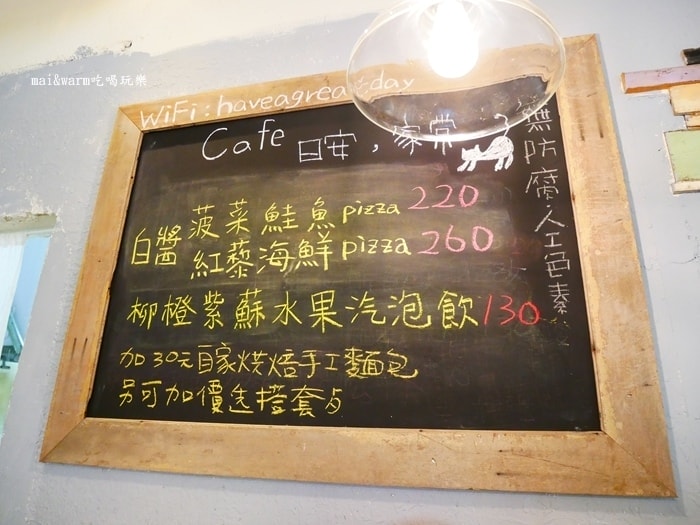 mai&warm吃喝玩樂
WiFi:haveagreatday
Cafe 日安，家常
無防腐·人工色素
白醬
菠菜鮭魚pizza 220
紅藜海鮮pizza 260
柳橙紫蘇水果汽泡飲 130
加30元自家烘焙手工麵包
另可加價選搭套